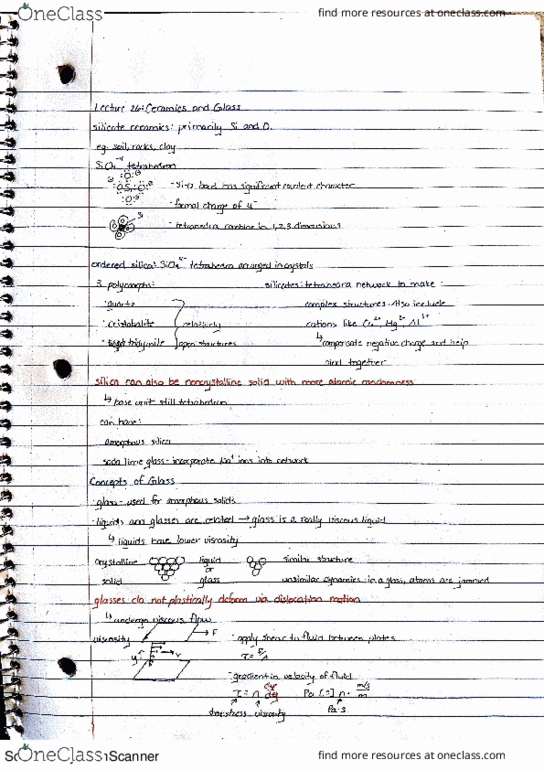 OneClass
find more resources at oneclass.com
Lecture 26: Ceramics and Glass
silicate ceramics: primarily Si and O.
eg. soil, rocks, clay
SiO₄⁻⁴ tetrahedron
- Si-O bond has significant covalent character
- formal charge of 4⁻
- tetrahedra combine in 1,2,3 dimensions
ordered silica: SiO₄⁴⁻ tetrahedra arranged in crystals
3 polymorphs:
· quartz
· cristobalite
relatively
open structures
silicates: tetrahedra network to make
complex structures. Also include
cations like Ca²⁺ Mg²⁺ Al³⁺
↳ compensate negative charge and help
together
silica can also be noncrystalline solid with more atomic randomness
↳ base unit still tetrahedron
can have:
amorphous silica
soda lime glass - incorporate Na⁺ ions into network
Concepts of Glass
· glass - used for amorphous solids
· liquids and glasses are related → glass is a really viscous liquid
↳ liquids have lower viscosity
crystalline liquid similar structure
solid or glass unsimilar dynamics - in a glass, atoms are jammed
glasses do not plastically deform via dislocation motion
↳ undergo viscous flow
viscosity → F · apply shear to fluid between plates
y v τ = F/A
· gradient in velocity of fluid
τ = η dv/dy Pa [=] η · m/s / m
stress viscosity Pa·s
OneClass
Scanner
find more resources at oneclass.com